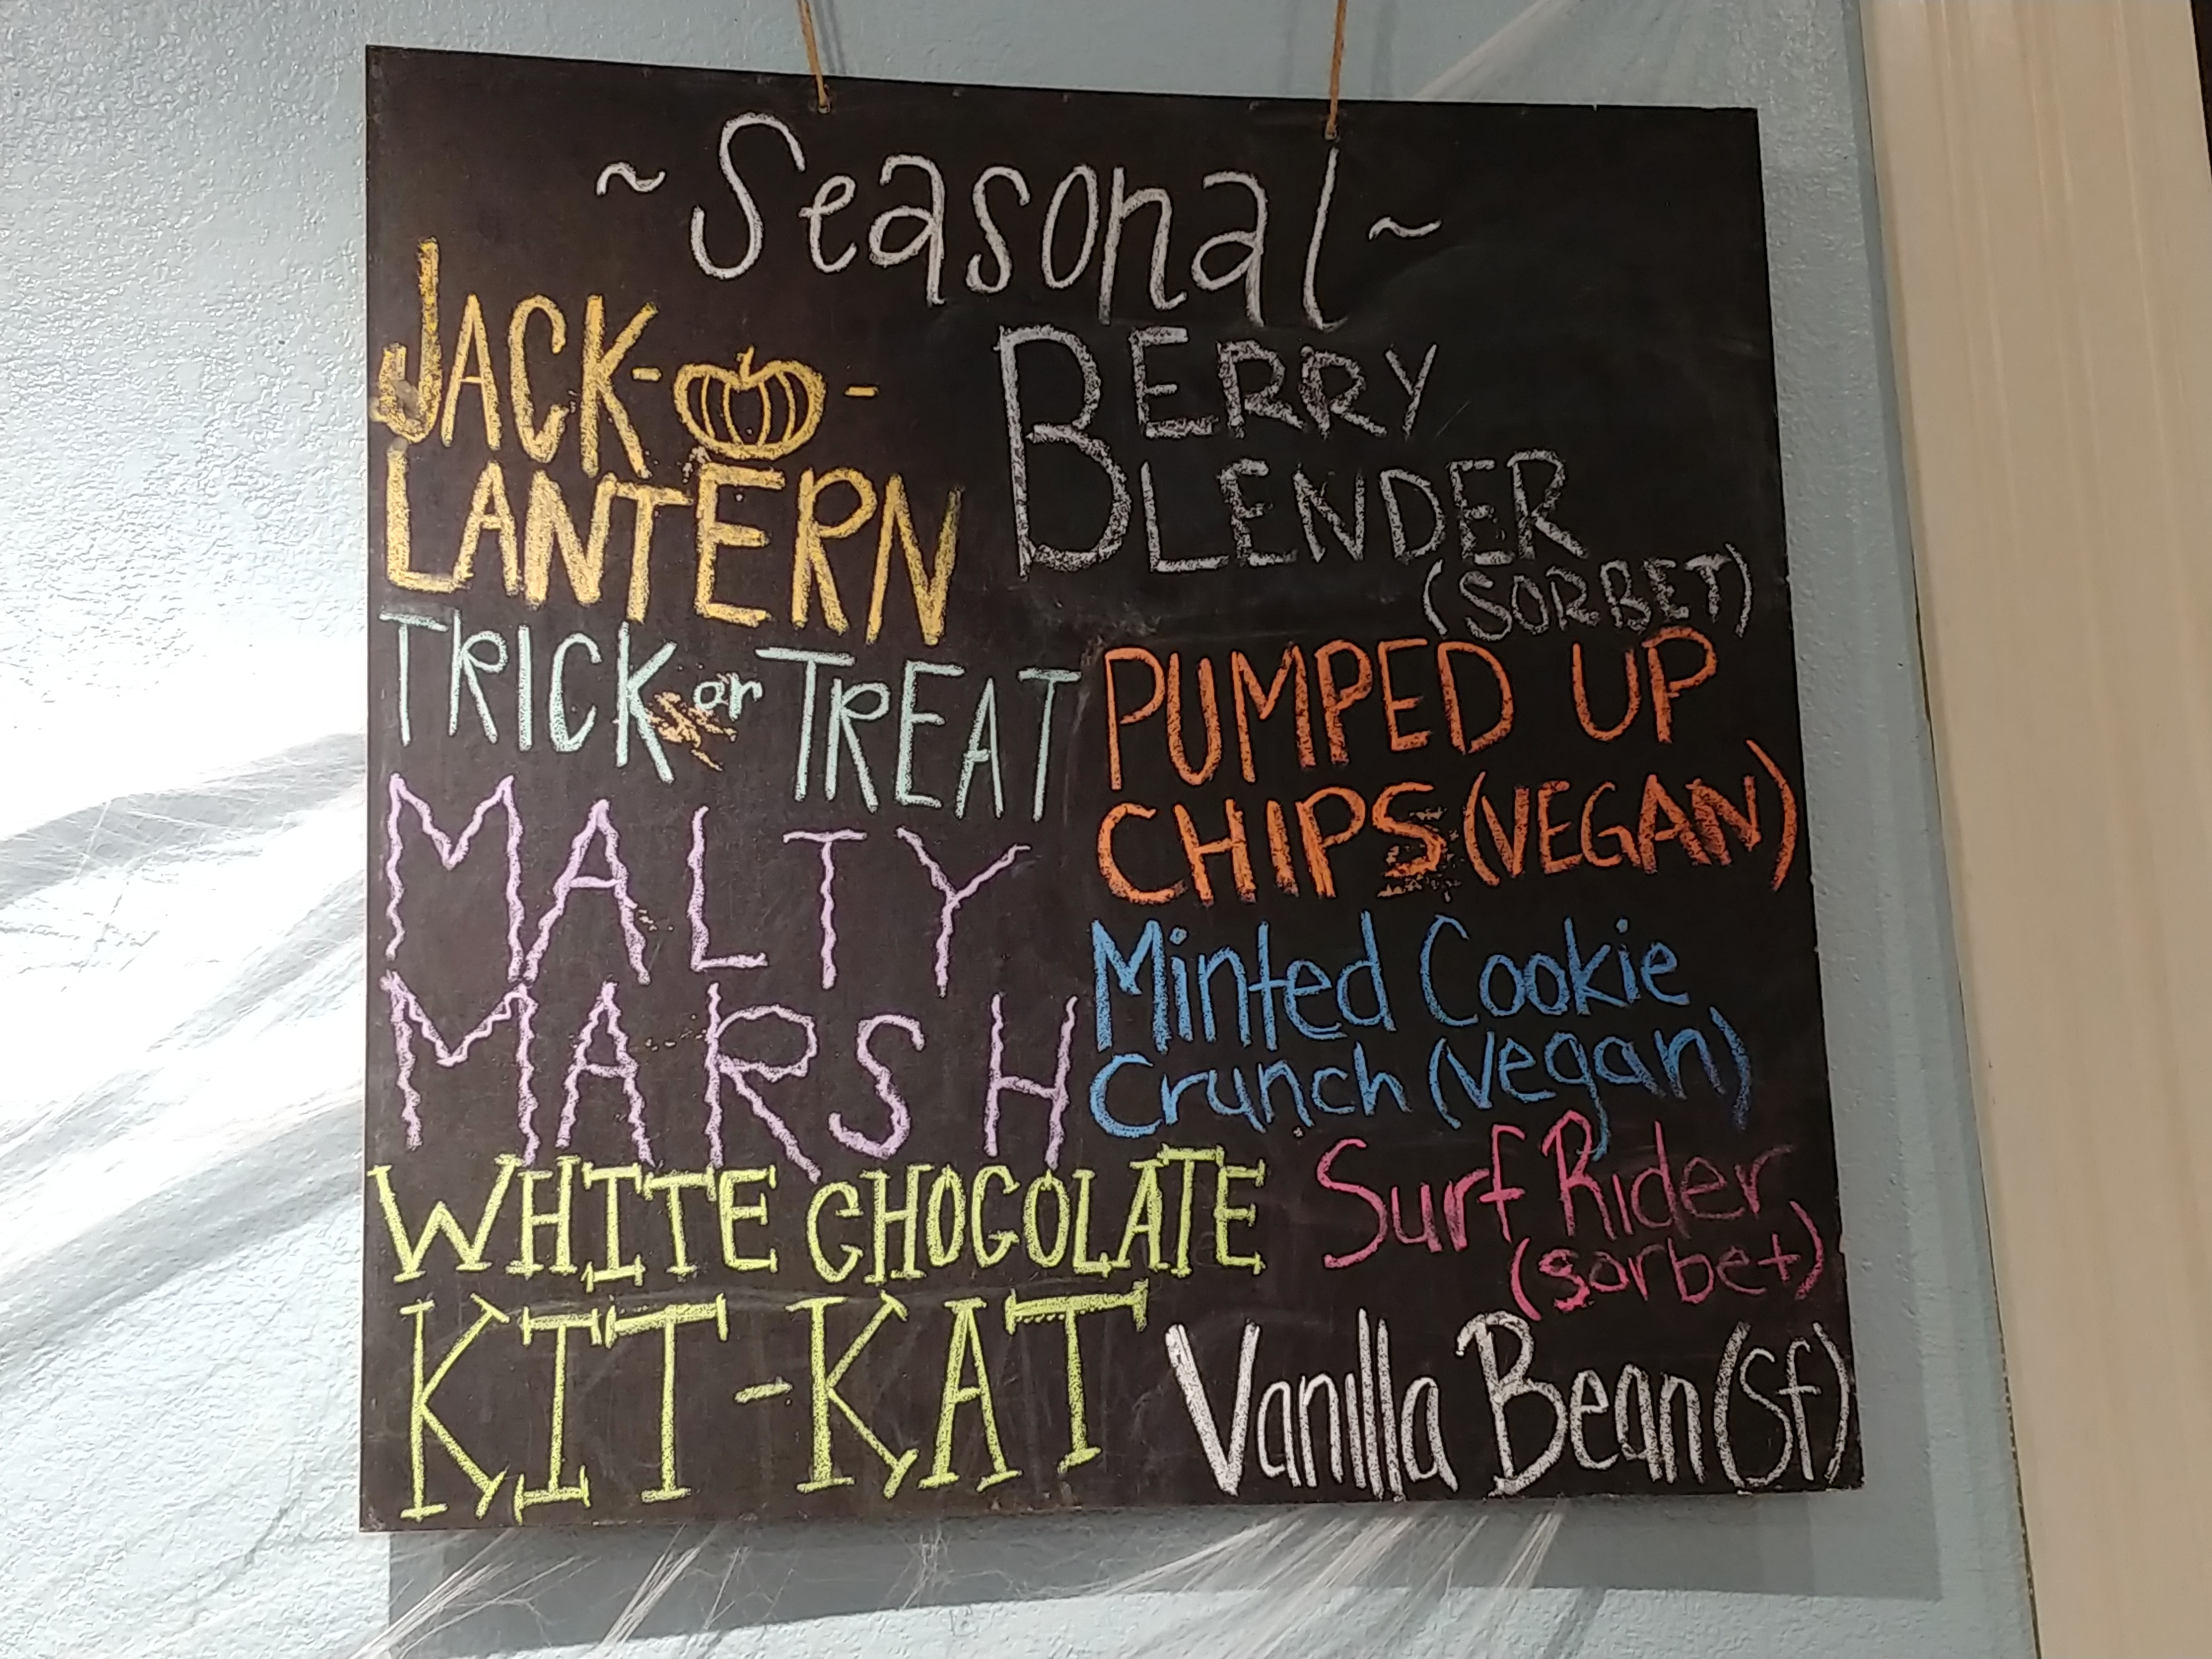 ~Seasonal~
JACK-
-
LANTERN
TRICK or TREAT
MALTY
MARSH
WHITE CHOCOLATE
KIT-KAT
BERRY
BLENDER
(SORBET)
PUMPED UP
CHIPS (VEGAN)
Minted Cookie
Crunch (Vegan)
Surf Rider
(sorbet)
Vanilla Bean (Sf)